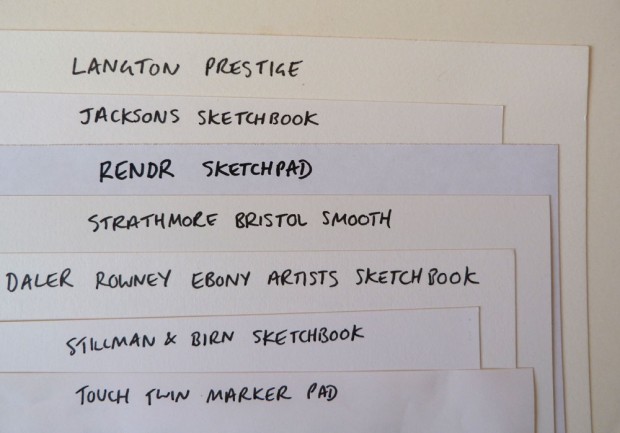 LANGTON PRESTIGE
JACKSONS SKETCHBOOK
RENDR SKETCHPAD
STRATHMORE BRISTOL SMOOTH
DALER ROWNEY EBONY ARTISTS SKETCHBOOK
STILLMAN & BIRN SKETCHBOOK
TOUCH TWIN MARKER PAD